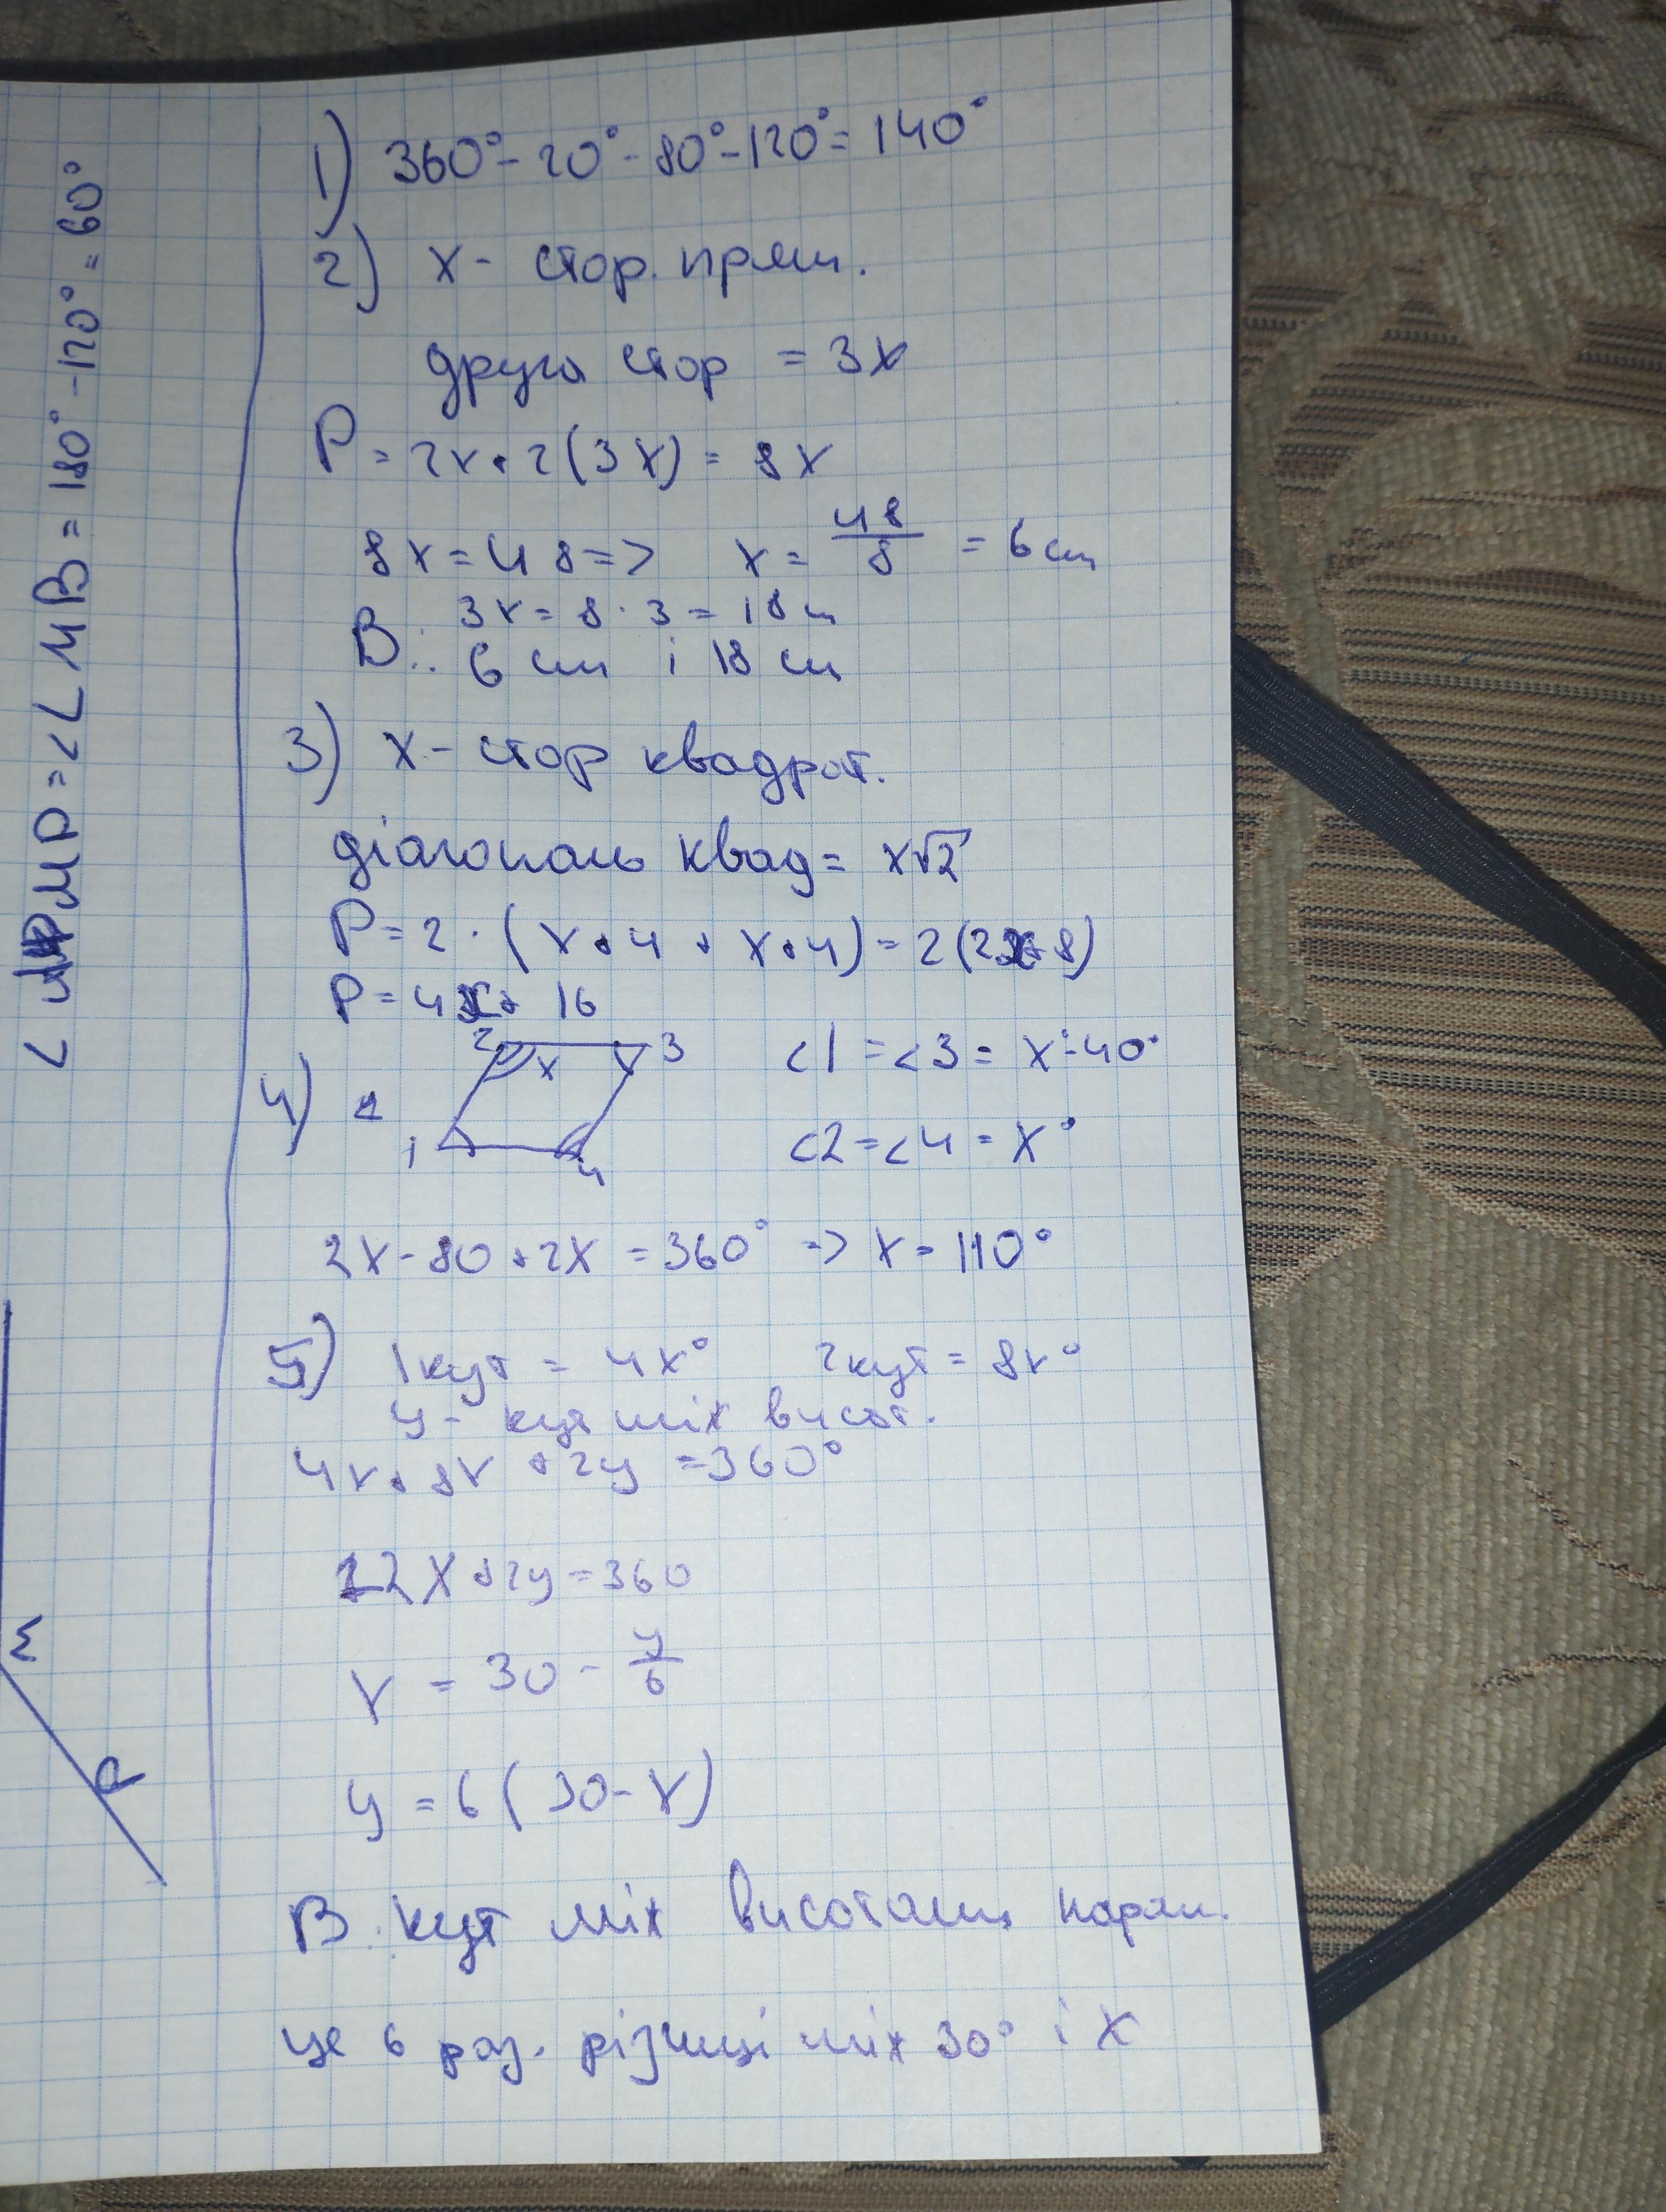 1) 360° - 20° - 80° - 120° = 140°
2) x - стор. прям.
друга стор = 3x
P = 2x + 2(3x) = 8x
8x = 48 => x = 48/8 = 6 см
3x = 8 · 3 = 18 м
В: 6 см і 18 см
3) x - стор квадрат.
діагональ квад = x√2
P = 2 · (x + 4 + x + 4) = 2(2x + 8)
P = 4x + 16
4)
2 3
x
1 4
<1 = <3 = x° - 40°
<2 = <4 = x°
2x - 80 + 2x = 360° => x = 110°
5) 1кут = 4x° 2кут = 8x°
y - кут між висот.
4x + 8x + 2y = 360°
12x + 2y = 360
x = 30 - y/6
y = 6(30 - x)
В: кут між висотами парал.
це 6 раз. різниці між 30° і x
∠ MP = <∠ MB = 180° - 120° = 60°
M
P